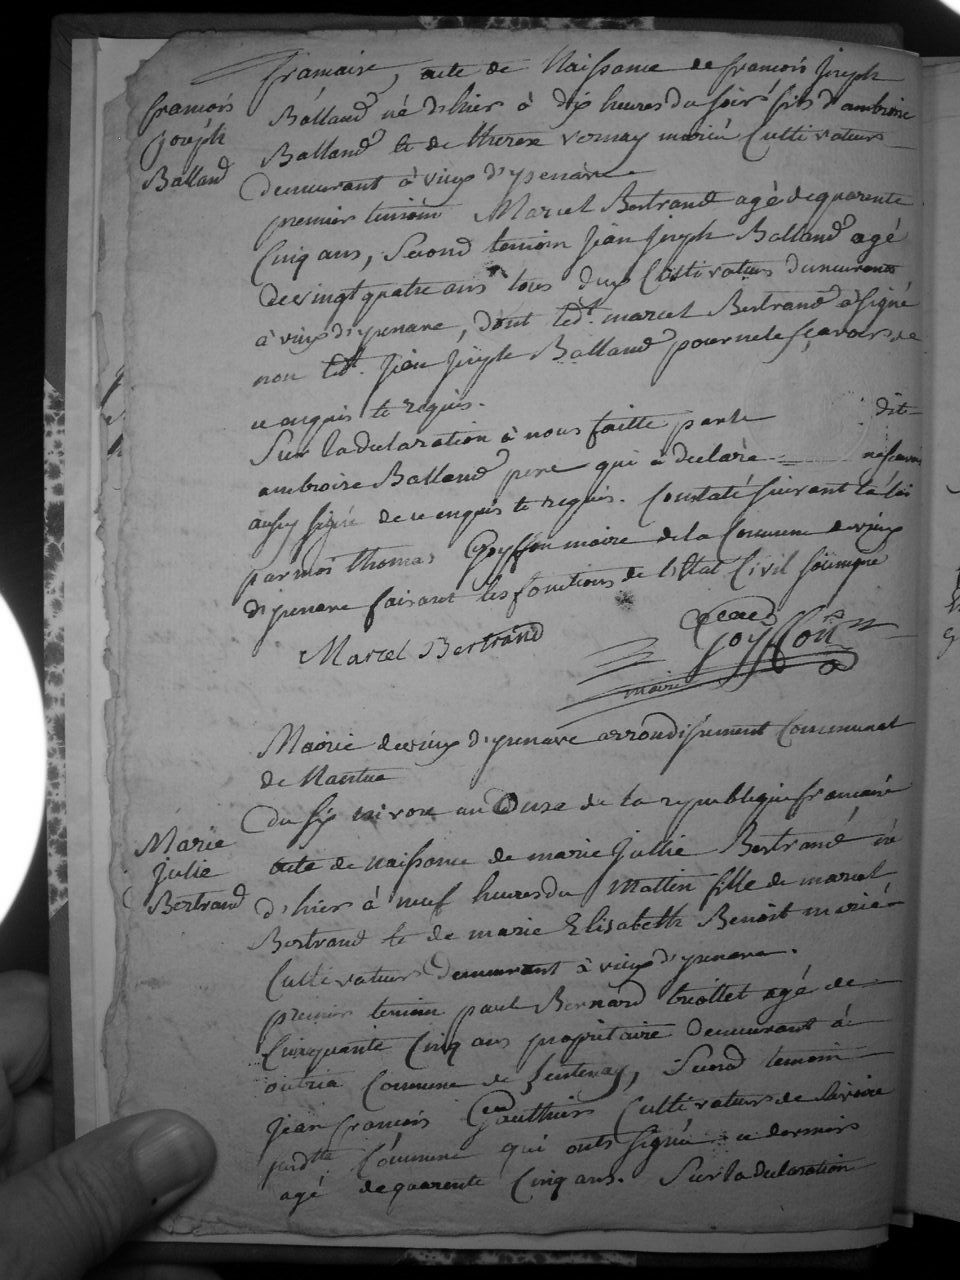 francois
Joseph
Balland
francaise, acte de Naissance de francois Joseph
Balland né d'hier à dix heures du soir fils d'ambroise
Balland et de therese vernay mariés Cultivateurs
demeurant à vieux d'ysenave
premier temoin Marcel Bertrand agé de quarente
Cinq ans, Second temoin Jean Joseph Balland agé
de vingt quatre ans tous deux Cultivateurs demeurants
à vieux d'ysenave, dont led.t marcel Bertrand à signé
non led.t Jean Joseph Balland pour ne le sçavoir de
ce enquis et requis.
Sur la declaration à nous faitte par le dit
ambroise Balland pere qui à declaré ne scavoir
aussy signé de ce enquis et requis. Constaté suivant la loi
par moi thomas Goyffon maire de la Commune de vieux
d'ysenave faisant les fonctions de l'Etat Civil soussigné
Marcel Bertrand
Goyffon
maire
Mairie de vieux d'ysenave arrondissement Communal
de Nantua
Marie
Julie
Bertrand
du six nivose an Onze de la republique francaise
acte de naissance de marie Jullie Bertrand né
d'hier à neuf heures du Mattin fille de marcel
Bertrand et de marie Elisabeth Benoit mariés
Cultivateurs demeurant à vieux d'ysenave.
premier temoin paul Bernard triollet agé de
Cinquante Cinq ans propriétaire demeurant à
outria Commune de Lentenay, Second temoin
Jean francois Gauthier Cultivateurs de
susd.tte Commune qui onts signé ce dernier
agé de quarente Cinq ans. Sur la declaration